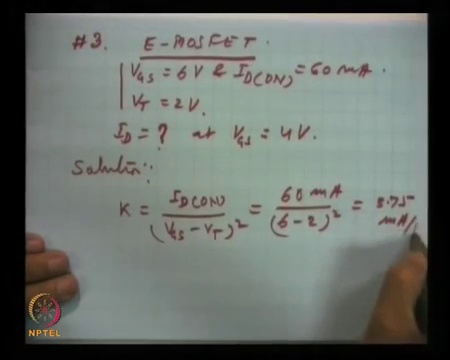 #3. E-MOSFET.
V_GS = 6V & I_D(ON) = 60 mA.
V_T = 2V.
I_D = ? at V_GS = 4V.
Solution:
K = I_D(ON) / (V_GS - V_T)^2 = 60 mA / (6-2)^2 = 3.75 mA/
NPTEL